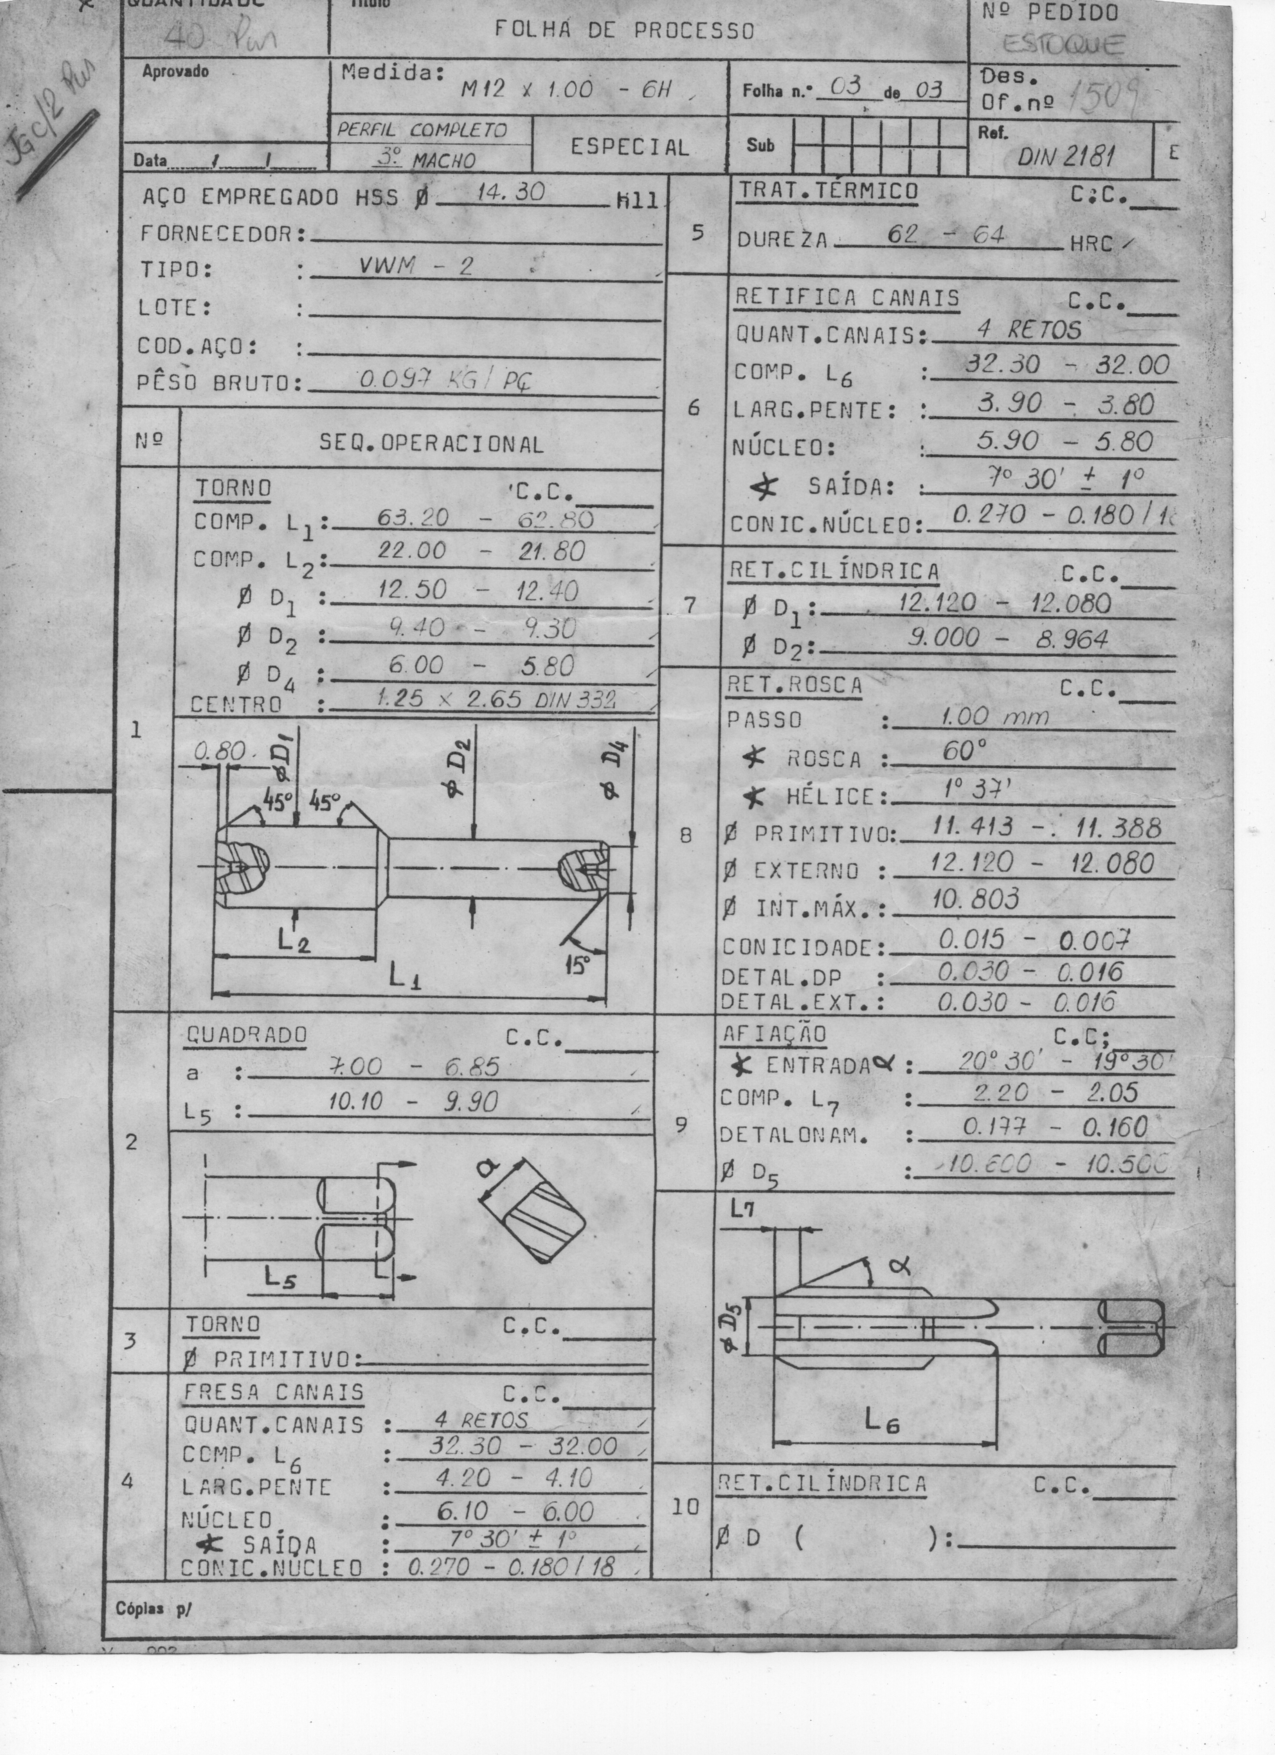 QUANTIDADE
40
Título
FOLHA DE PROCESSO
Nº PEDIDO
ESTOQUE
Aprovado
Data / /
Medida:
M12 x 1.00 - 6H
PERFIL COMPLETO
3º MACHO
ESPECIAL
Folha n.º 03 de 03
Sub
Des.
Of.nº 1509
Ref.
DIN 2181
E
AÇO EMPREGADO HSS Ø 14.30 H11
FORNECEDOR:
TIPO: : VWM - 2
LOTE: :
COD.AÇO: :
PÊSO BRUTO: 0.097 KG/PÇ
Nº SEQ.OPERACIONAL
1
TORNO C.C.
COMP. L1: 63.20 - 62.80
COMP. L2: 22.00 - 21.80
Ø D1 : 12.50 - 12.40
Ø D2 : 9.40 - 9.30
Ø D4 : 6.00 - 5.80
CENTRO : 1.25 x 2.65 DIN 332
0.80
ØD1
Ø D2
Ø D4
45° 45°
L2
15°
L1
2
QUADRADO C.C.
a : 7.00 - 6.85
L5 : 10.10 - 9.90
a
L5
3
TORNO C.C.
Ø PRIMITIVO:
4
FRESA CANAIS C.C.
QUANT.CANAIS : 4 RETOS
COMP. L6 : 32.30 - 32.00
LARG.PENTE : 4.20 - 4.10
NÚCLEO : 6.10 - 6.00
∢ SAÍDA : 7° 30' ± 1°
CONIC.NÚCLEO : 0.270 - 0.180/18
5
TRAT.TÉRMICO C.C.
DUREZA 62 - 64 HRC
6
RETIFICA CANAIS C.C.
QUANT.CANAIS: 4 RETOS
COMP. L6 : 32.30 - 32.00
LARG.PENTE: : 3.90 - 3.80
NÚCLEO: : 5.90 - 5.80
∢ SAÍDA: : 7° 30' ± 1°
CONIC.NÚCLEO: 0.270 - 0.180/1
7
RET.CILÍNDRICA C.C.
Ø D1: 12.120 - 12.080
Ø D2: 9.000 - 8.964
8
RET.ROSCA C.C.
PASSO : 1.00 mm
∢ ROSCA : 60°
∢ HÉLICE: 1° 37'
Ø PRIMITIVO: 11.413 - 11.388
Ø EXTERNO : 12.120 - 12.080
Ø INT.MÁX.: 10.803
CONICIDADE: 0.015 - 0.007
DETAL.DP : 0.030 - 0.016
DETAL.EXT.: 0.030 - 0.016
9
AFIAÇÃO C.C;
∢ ENTRADA α : 20° 30' - 19° 30'
COMP. L7 : 2.20 - 2.05
DETALONAM. : 0.177 - 0.160
Ø D5 : 10.600 - 10.500
L7
α
Ø D5
L6
10
RET.CILÍNDRICA C.C.
Ø D ( ):
Cópias p/